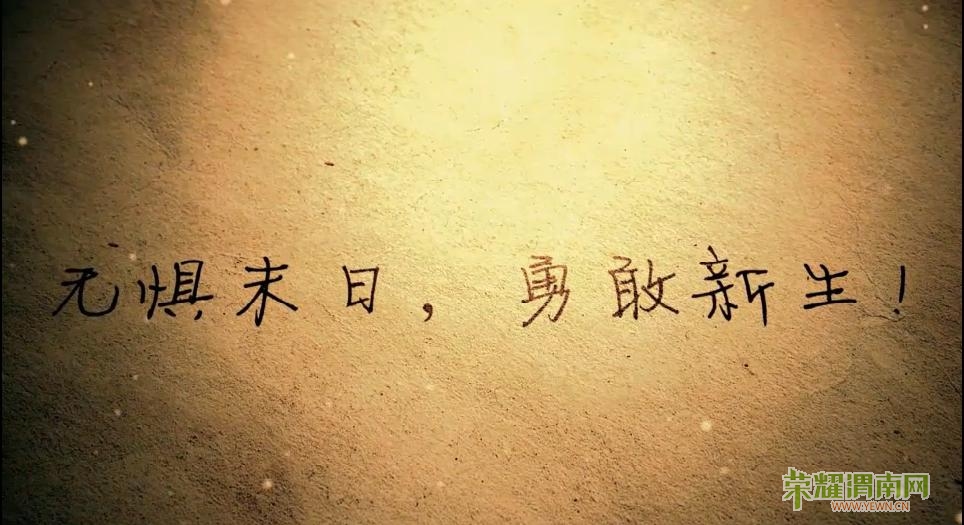 无惧末日，勇敢新生！
荣耀渭南网
WWW.YEWN.CN